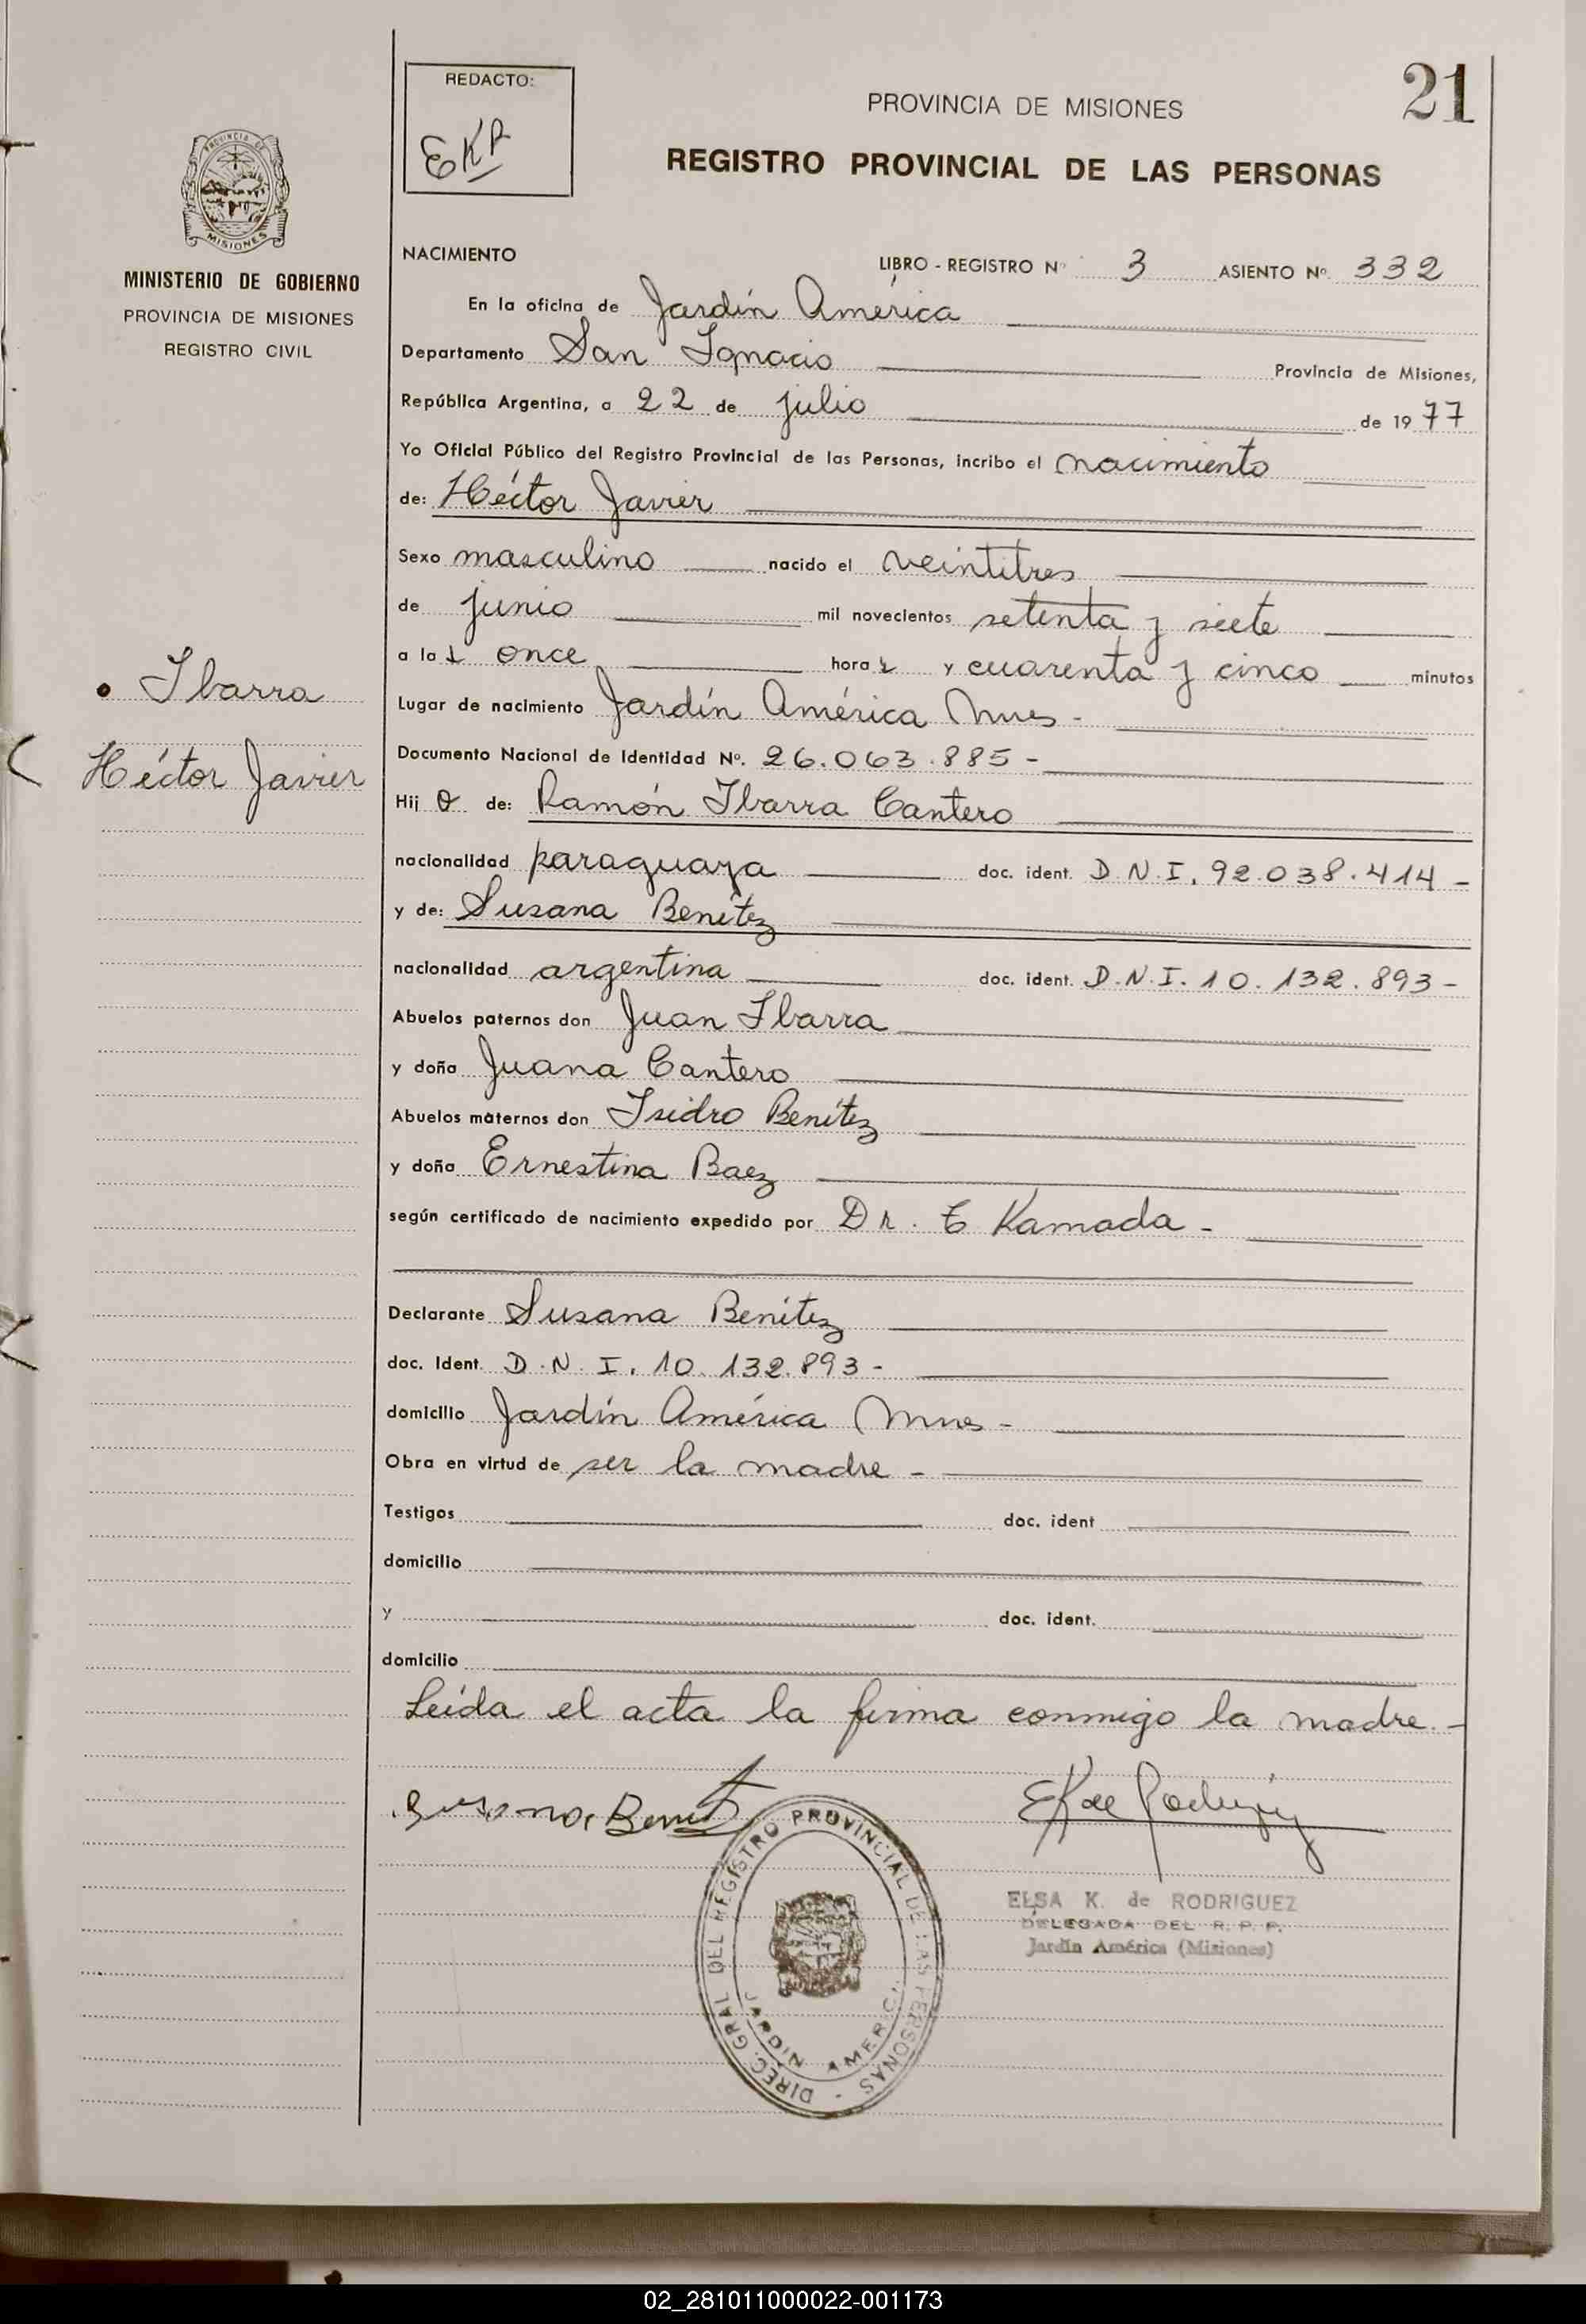 21
REDACTO:
EKR
PROVINCIA DE MISIONES
REGISTRO PROVINCIAL DE LAS PERSONAS
PROVINCIA DE
MISIONES
MINISTERIO DE GOBIERNO
PROVINCIA DE MISIONES
REGISTRO CIVIL
Ibarra
Héctor Javier
NACIMIENTO
LIBRO - REGISTRO Nº 3 ASIENTO Nº 332
En la oficina de Jardín América
Departamento San Ignacio Provincia de Misiones,
República Argentina, a 22 de julio de 1977
Yo Oficial Público del Registro Provincial de las Personas, incribo el nacimiento
de: Héctor Javier
Sexo masculino nacido el veintitres
de junio mil novecientos setenta y siete
a las once horas y cuarenta y cinco minutos
Lugar de nacimiento Jardín América Mnes -
Documento Nacional de Identidad Nº. 26.063.885 -
Hijo de: Ramón Ibarra Cantero
nacionalidad paraguaya doc. ident. D.N.I. 92.038.414 -
y de: Susana Benítez
nacionalidad argentina doc. ident. D.N.I. 10.132.893 -
Abuelos paternos don Juan Ibarra
y doña Juana Cantero
Abuelos maternos don Isidro Benítez
y doña Ernestina Baez
según certificado de nacimiento expedido por Dr. E Kamada -
Declarante Susana Benítez
doc. Ident. D.N.I. 10.132.893 -
domicilio Jardín América Mnes -
Obra en virtud de ser la madre -
Testigos doc. ident
domicilio
y doc. ident.
domicilio
Leída el acta la firma conmigo la madre. -
Susana Benitez
EK de Rodriguez
DIREC. GRAL. DEL REGISTRO PROVINCIAL DE LAS PERSONAS -
JARDIN AMERICA
ELSA K. de RODRIGUEZ
DELEGADA DEL R. P. P.
Jardín América (Misiones)
02_281011000022-001173